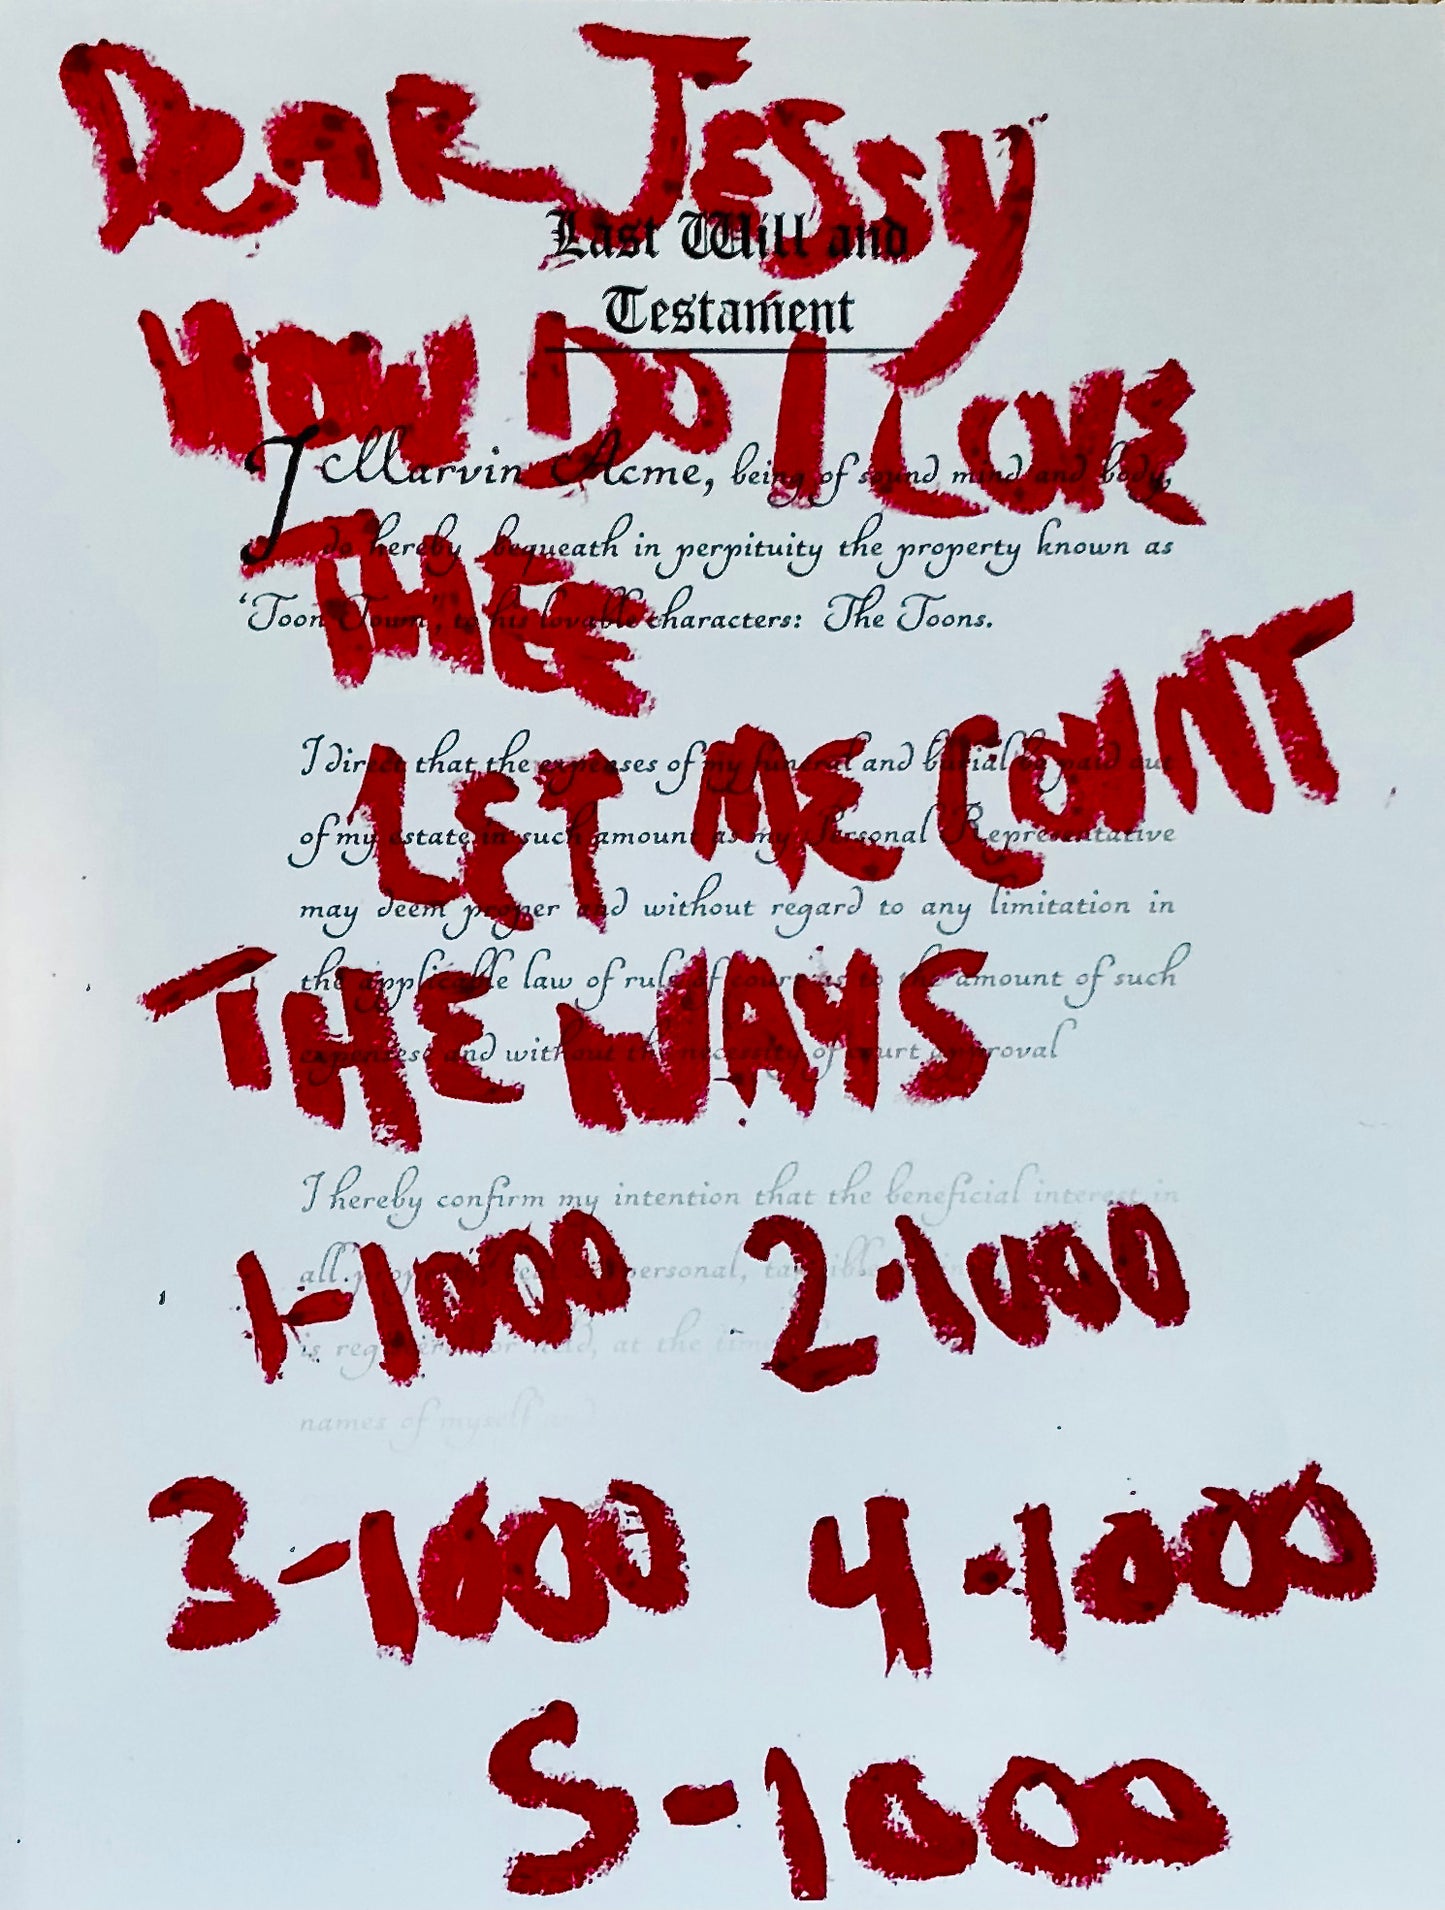 DEAR JESSY
Last Will and
Testament
HOW DO I LOVE
I Marvin Acme, being of sound mind and body,
do hereby bequeath in perpituity the property known as
THEE
'Toon Town', to his lovable characters: The Toons.
LET ME COUNT
I direct that the expenses of my funeral and burial be paid out
of my estate in such amount as my Personal Representative
may deem proper and without regard to any limitation in
THE WAYS
the applicable law of rule of court as to the amount of such
expenses and without the necessity of court approval
I hereby confirm my intention that the beneficial interest in
1-1000 2-1000
all property, real or personal, tangible
is registered or held, at the time
names of myself and
3-1000 4-1000
5-1000